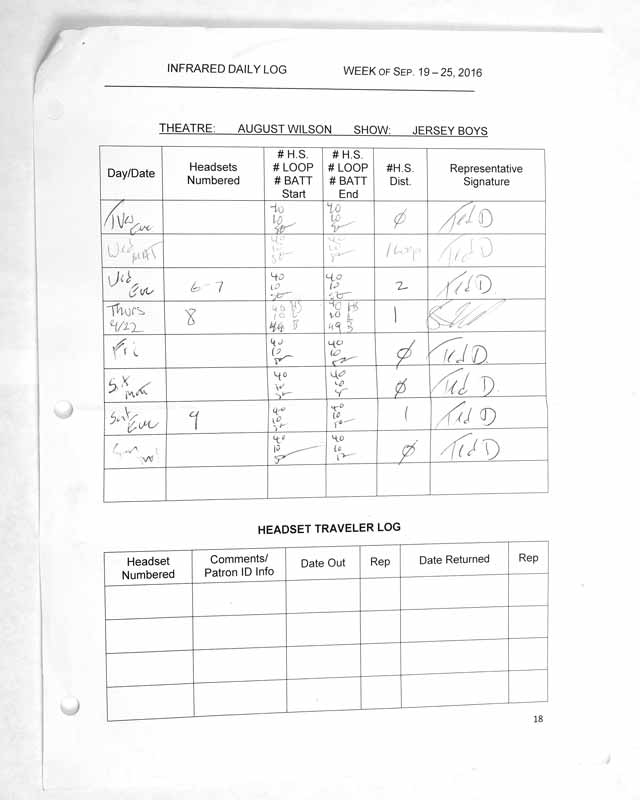 INFRARED DAILY LOG WEEK OF SEP. 19 – 25, 2016
THEATRE: AUGUST WILSON SHOW: JERSEY BOYS
Day/Date Headsets Numbered # H.S. # LOOP # BATT Start # H.S. # LOOP # BATT End #H.S. Dist. Representative Signature
Tues Eve 40 10 50 40 10 50 Ø Ted D
Wed MAT 40 10 50 40 10 50 1 Loop Ted D
Wed Eve 6-7 40 10 50 40 10 50 2 Ted D.
Thurs 9/22 8 40 HS 10 L 49 B 40 HS 10 L 49 B 1
Fri 40 10 50 40 10 50 Ø Ted D.
Sat Mat 40 10 50 40 10 50 Ø Ted D.
Sat Eve 9 40 10 50 40 10 50 1 Ted D
Sun Mat 40 10 50 40 10 50 Ø Ted D
HEADSET TRAVELER LOG
Headset Numbered Comments/ Patron ID Info Date Out Rep Date Returned Rep
18